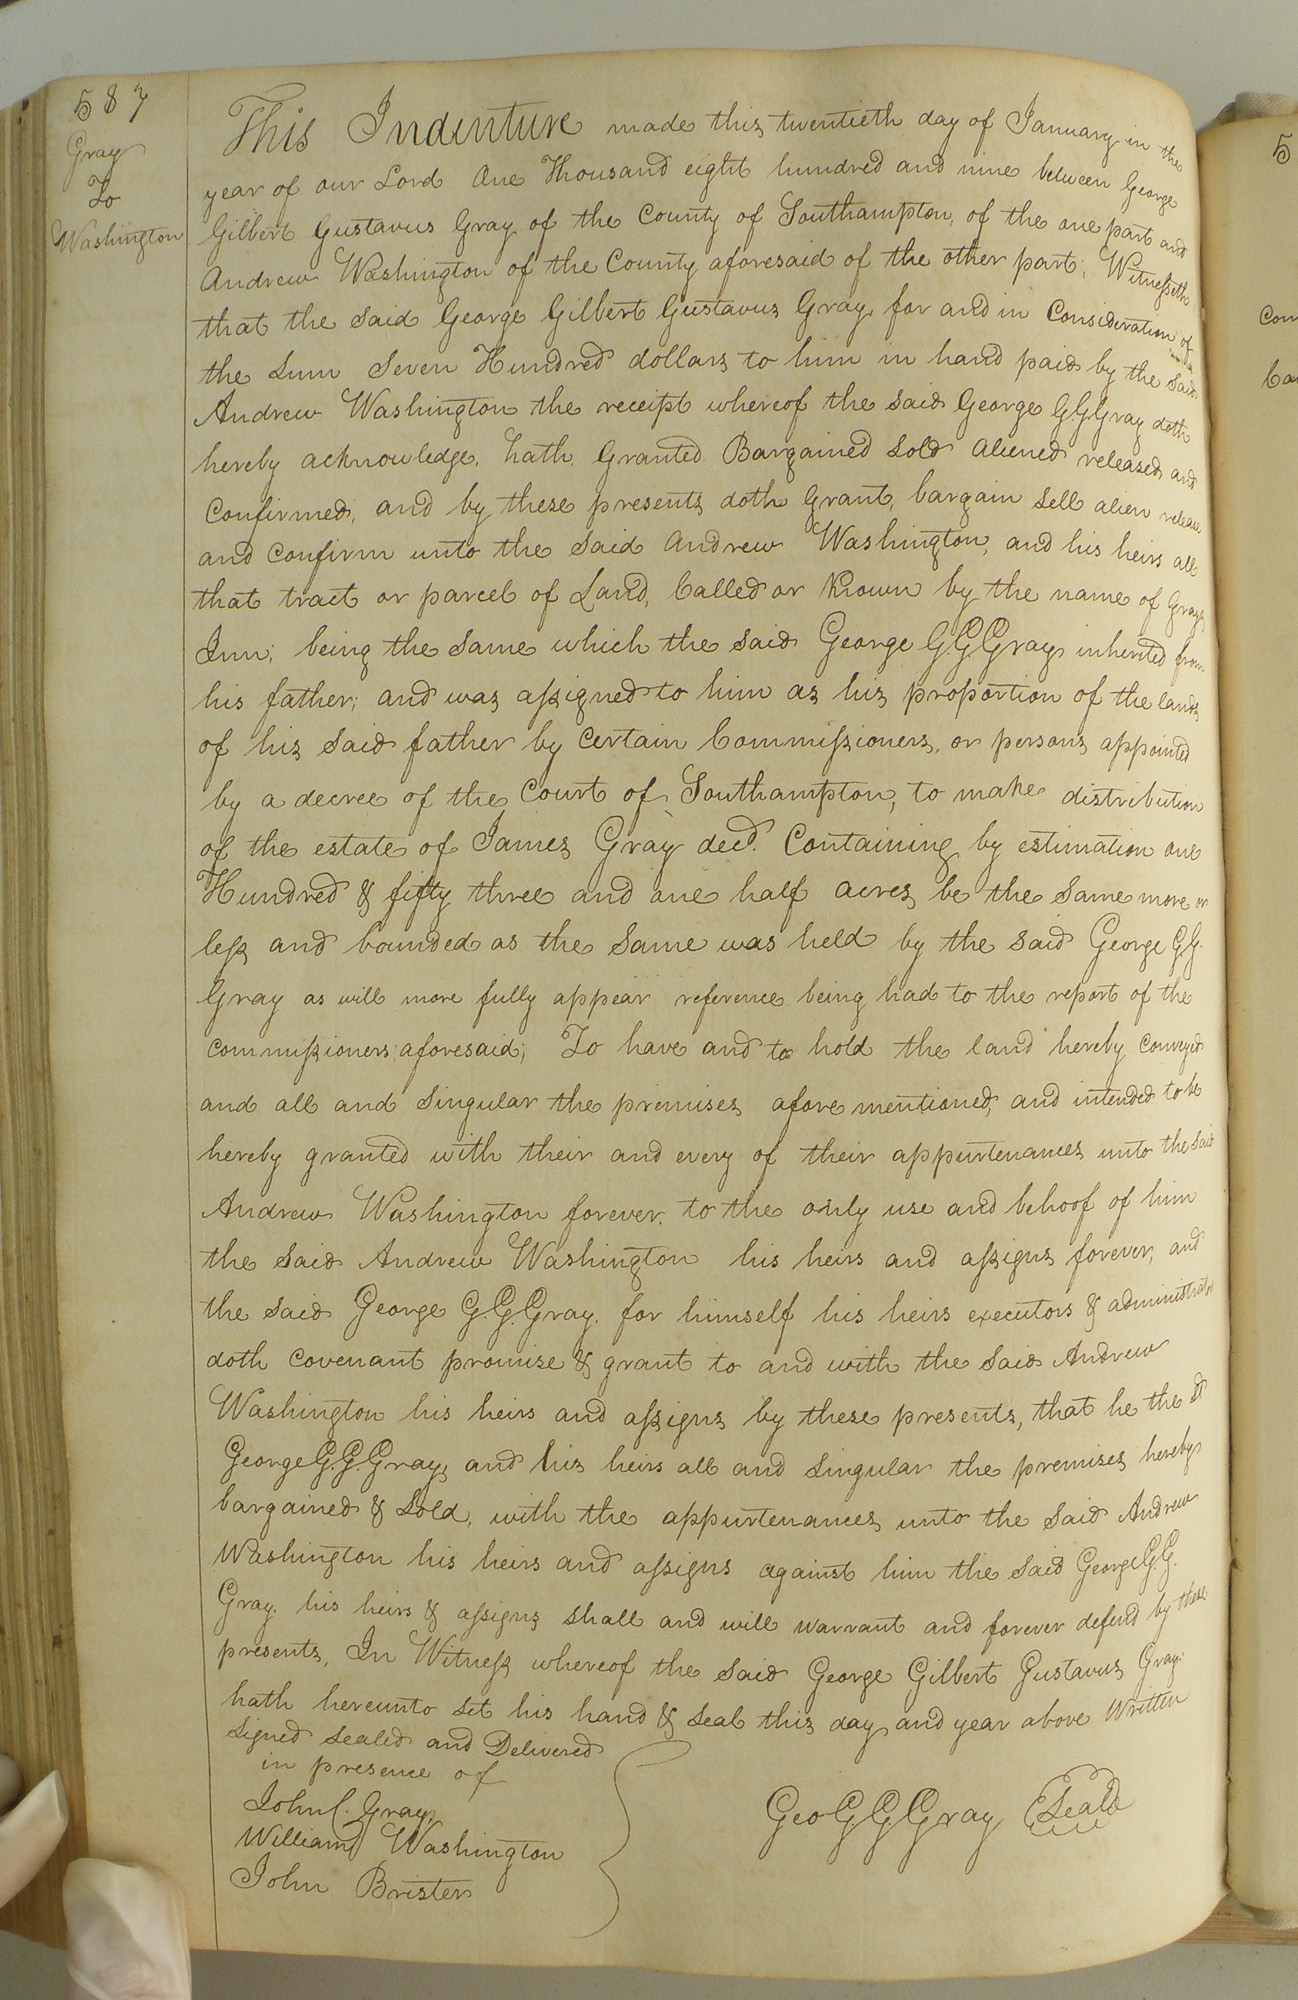 587
Gray
To
Washington
This Indenture made this twentieth day of January in the
year of our Lord One Thousand eight hundred and nine between George
Gilbert Gustavus Gray of the County of Southampton, of the one part and
Andrew Washington of the County aforesaid of the other part; Witnesseth
that the said George Gilbert Gustavus Gray for and in Consideration of
the Sum Seven Hundred dollars to him in hand paid by the said
Andrew Washington the receipt whereof the said George G.G.Gray doth
hereby acknowledge, hath Granted Bargained Sold aliened released and
Confirmed, and by these presents doth Grant, bargain Sell alien release
and Confirm unto the said Andrew Washington, and his heirs all
that tract or parcel of Land, Called or Known by the name of Grays
Inn; being the Same which the said George G.G.Gray inherited from
his father; and was assigned to him as his proportion of the lands
of his said father by Certain Commissioners, or persons appointed
by a decree of the Court of Southampton, to make distribution
of the estate of James Gray decd. Containing by estimation one
Hundred & fifty three and one half acres be the Same more or
less and bounded as the Same was held by the said George G.G.
Gray as will more fully appear reference being had to the report of the
Commissioners aforesaid; To have and to hold the land hereby Conveyed
and all and Singular the premises afore mentioned, and intended to be
hereby granted with their and every of their appurtenances unto the said
Andrew Washington forever, to the only use and behoof of him
the said Andrew Washington his heirs and assigns forever, and
the said George G.G.Gray, for himself his heirs executors & administrators
doth Covenant promise & grant to and with the said Andrew
Washington his heirs and assigns by these presents, that he the sd
George G.G.Gray, and his heirs all and Singular the premises hereby
bargained & Sold, with the appurtenances unto the said Andrew
Washington his heirs and assigns against him the said George G.G.
Gray. his heirs & assigns shall and will warrant and forever defend by these
presents, In Witness whereof the said George Gilbert Gustavus Gray
hath hereunto Set his hand & Seal this day and year above Written
Signed Sealed and Delivered
in presence of
John C. Gray
William Washington
John Brister
Geo G G Gray Seald
5
Con